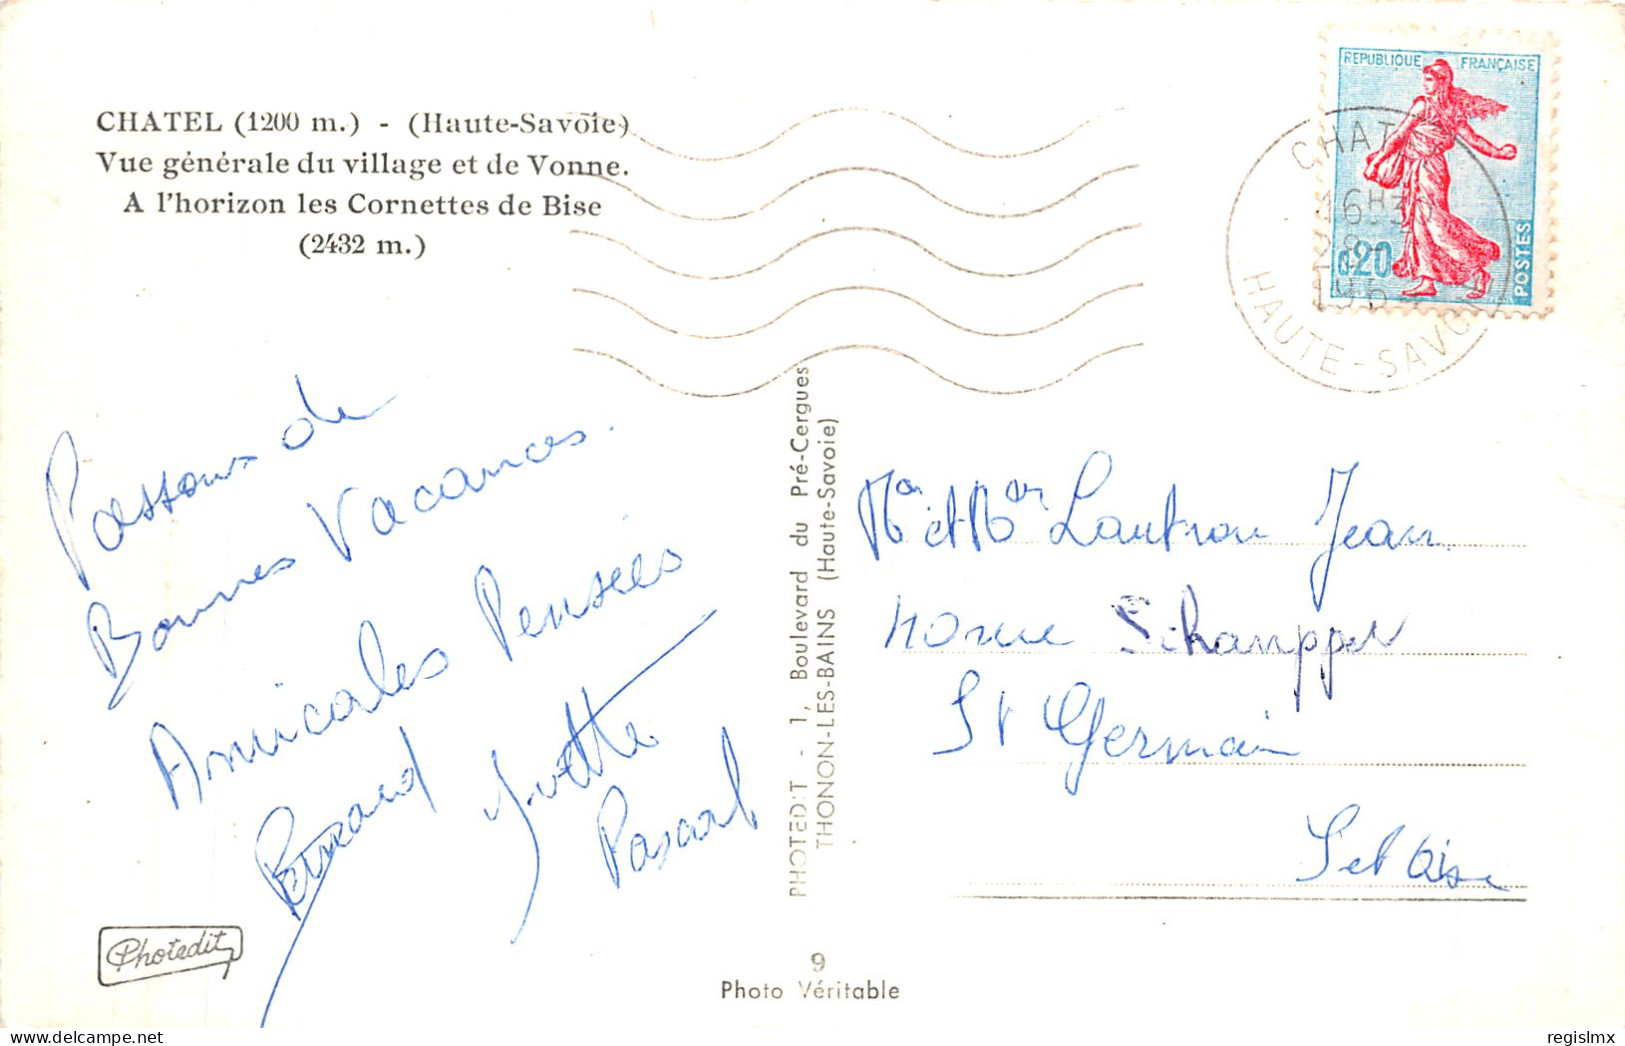 CHATEL (1200 m.) - (Haute-Savoie)
Vue générale du village et de Vonne.
A l'horizon les Cornettes de Bise
(2432 m.)
REPUBLIQUE FRANÇAISE
0,20
POSTES
CHATEL
16H30
HAUTE-SAVOIE
Passons de
Bonnes Vacances.
Amicales Pensées
Bernard Yvette
Pascal
PHOTEDIT - 1, Boulevard du Pré-Cergues
THONON-LES-BAINS (Haute-Savoie)
Mr et Mme Lautron Jean
rue Schampper
St Germain
Set Oise
Photedit
9
Photo Véritable
delcampe.net
regislmx